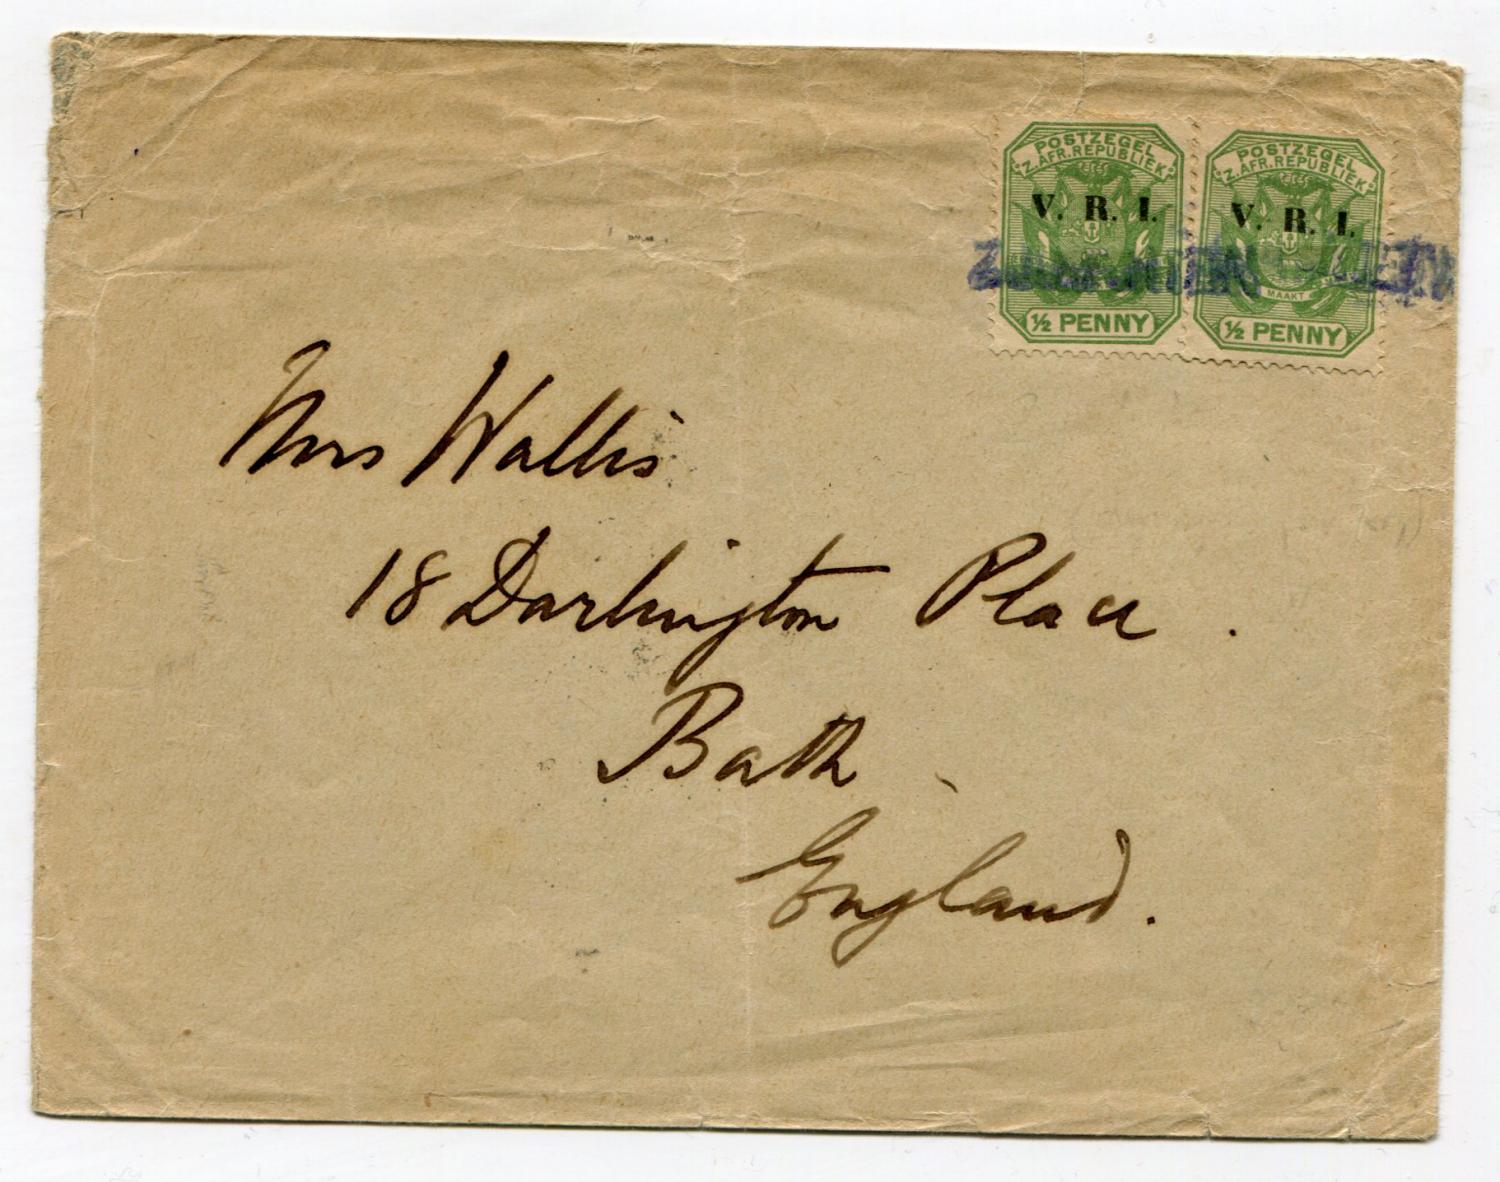 POSTZEGEL
Z. AFR. REPUBLIEK
V. R. I.
½ PENNY
POSTZEGEL
Z. AFR. REPUBLIEK
V. R. I.
MAAKT
½ PENNY
Mrs Wallis
18 Darlington Place.
Bath
England.